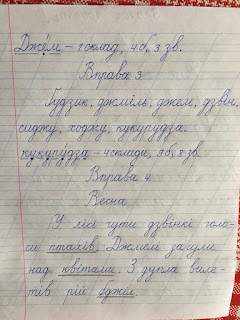 Джем – 1 склад, 4 б, 3 зв.
Вправа 3
Ґудзик, джміль, джем, дзвін,
сиджу, ходжу, кукурудза.
кукурудза – 4 склади, 9 б, 8 зв.
Вправа 4
Весна
У лісі чути дзвінкі голо-
си птахів. Джмелі загули
над квітами. З дупла виле-
тів рій бджіл.